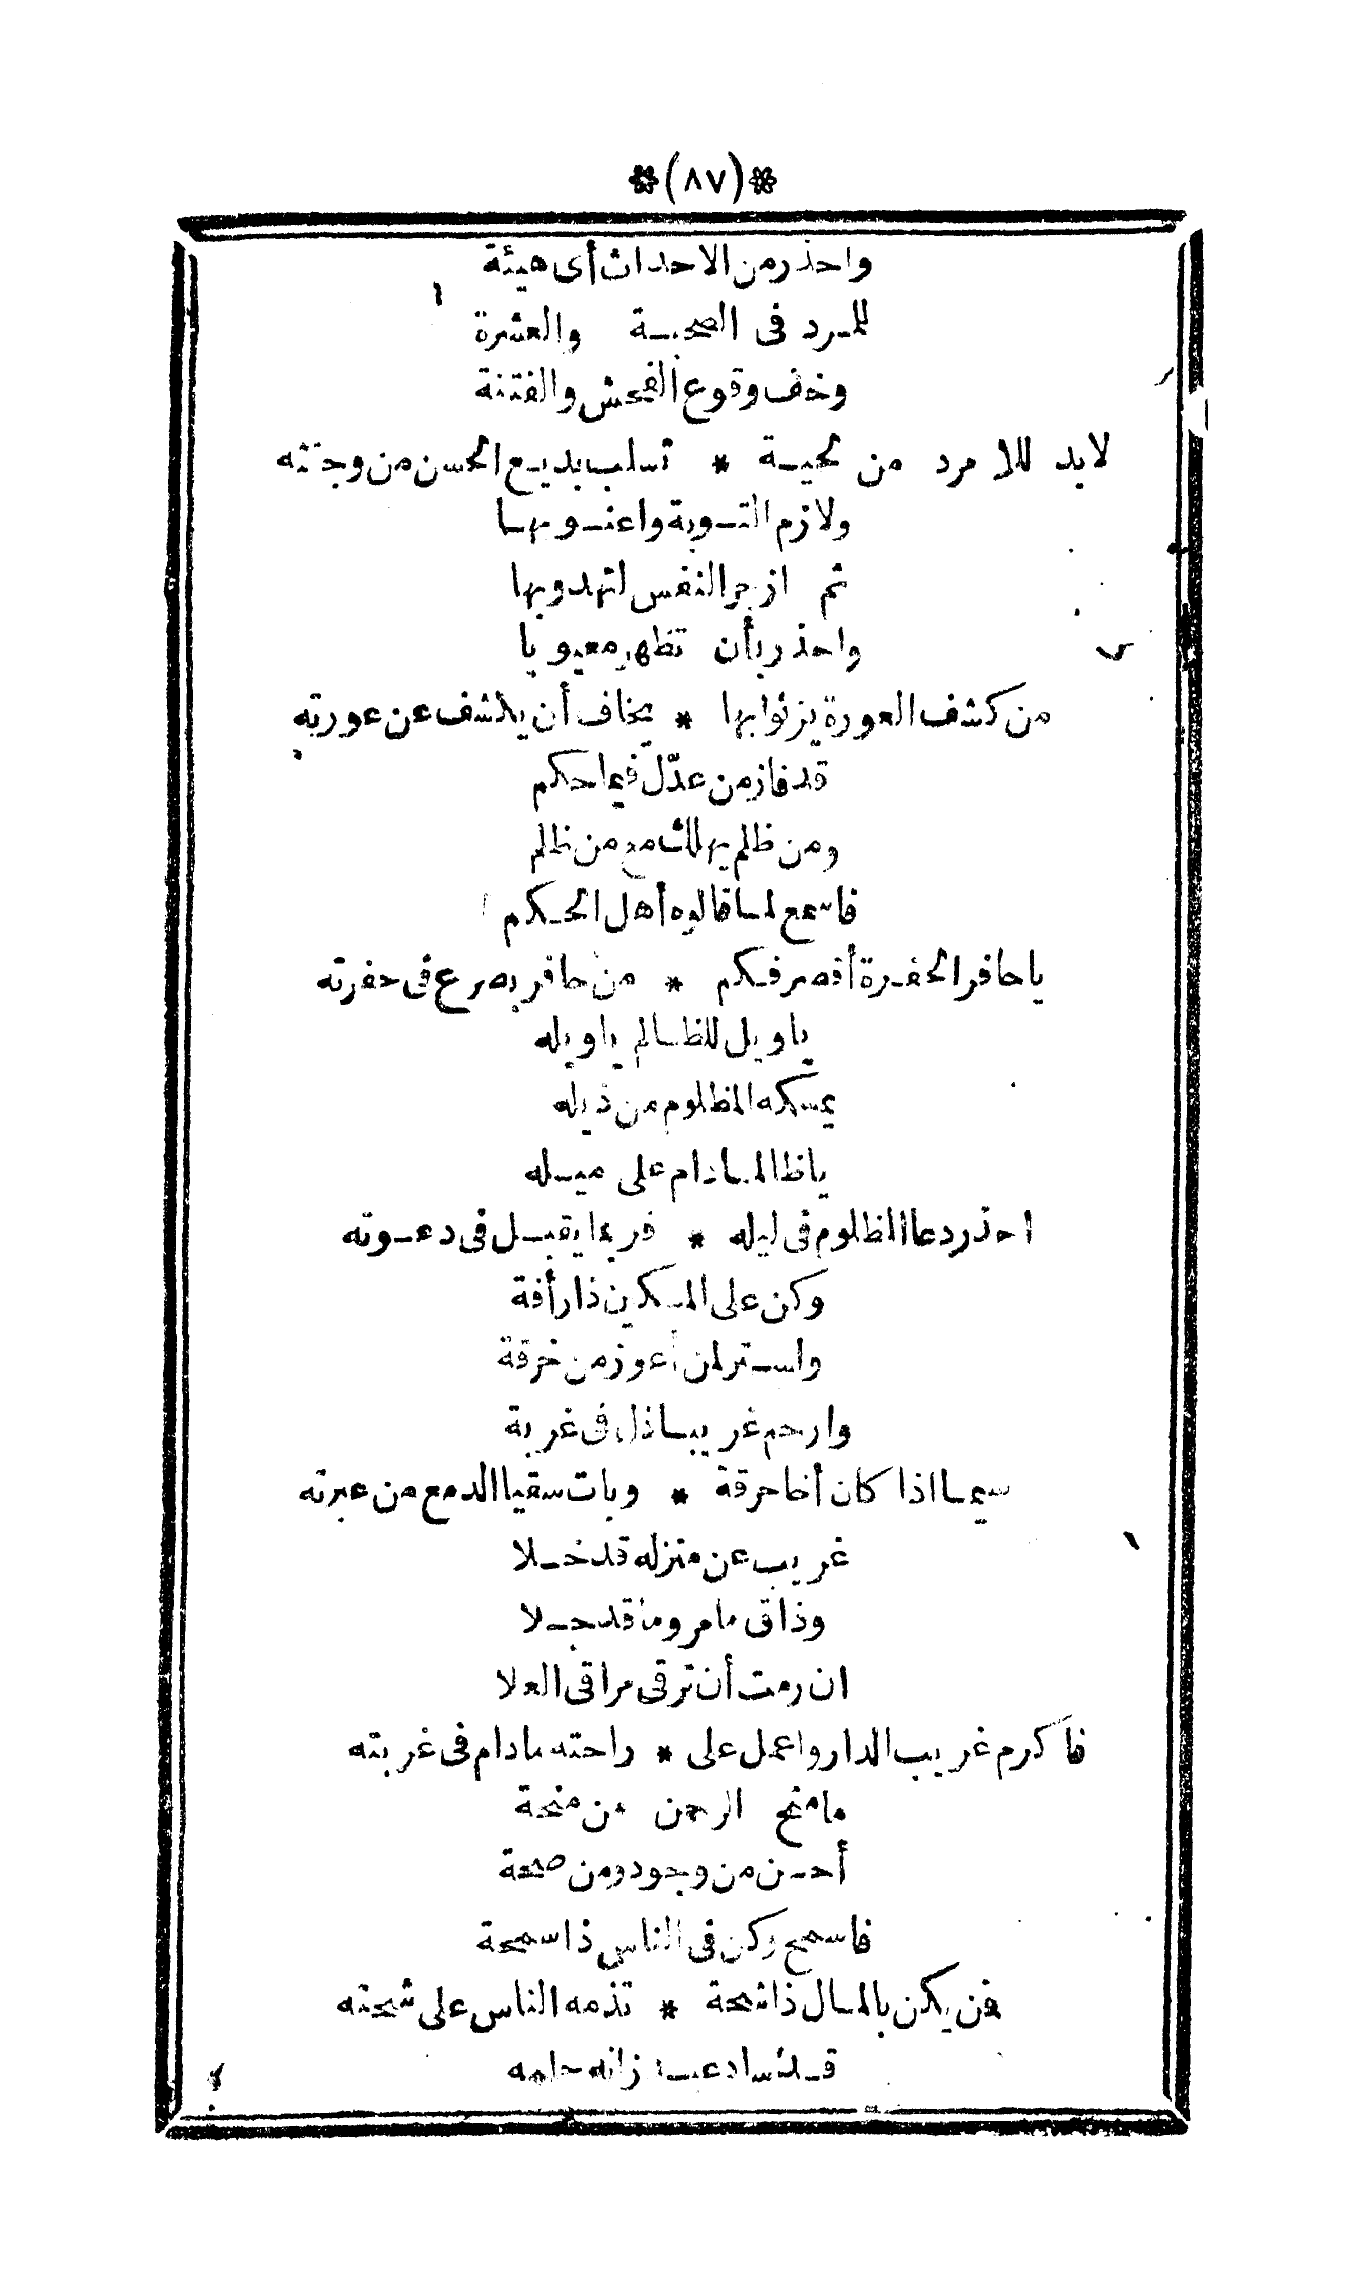 *(٨٧)*
واحذر من الاحداث أى هيئة
للمرد فى الصحبة والعشرة
وخف وقوع الفحش والفتنة
لابد للامرد من لحية * تسلب بديع الحسن من وجنته
ولازم التوبة واعنوبها
ثم ازجر النفس لتهدوبها
واحذر بأن تظهر معيوبا
من كشف العورة يزئوابها * يخاف أن يكشف عن عورته
قد فاز من عدّل فيما حكم
ومن ظلم يهلك مع من ظلم
فاسمع لما قالوه أهل الحكم
يا حافر الحفرة أقصر فكم * من حافر يصرع فى حفرته
ياويل للظالم ياويله
يمسكه المظلوم من ذيله
ياظالما دام على ميله
احذر دعا المظلوم فى ليله * فربما يقبل فى دعوته
وكن على المسكين ذا رأفة
واستر لمن أعوز من خرقة
وارحم غريبا ذل فى غربة
سيما اذا كان أخا حرقة * وبات سقيا الدمع من عبرته
غريب عن منزله قد خلا
وذاق ما مر وما قد حلا
ان رمت أن ترقى مراقى العلا
فاكرم غريب الدار واعمل على * راحته مادام فى غربته
مامنح الرحمن من منحة
أحسن من وجود ومن صحة
فاسمح وكن فى الناس ذا سمحة
فمن يكن بالمال ذا شحة * تذمه الناس على شحته
قد ساد عبد زانه حلمه